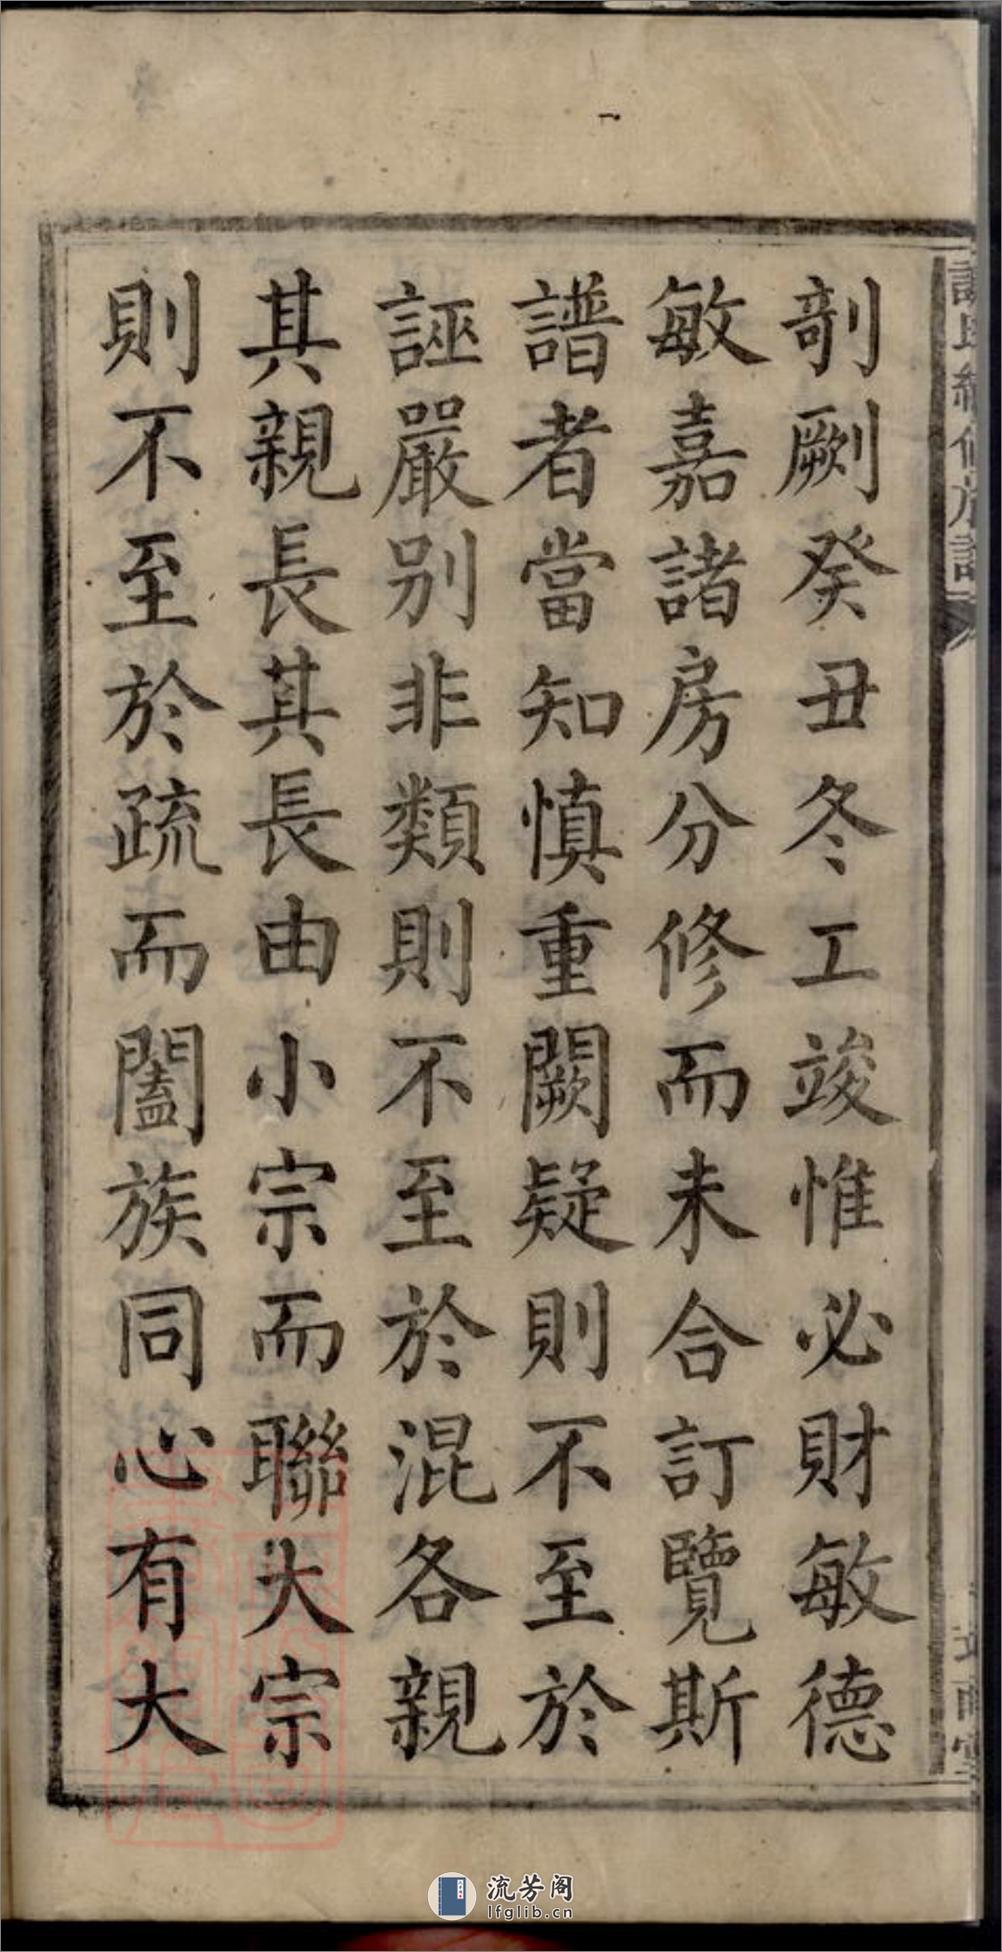 剞劂癸丑冬工竣惟必財敏德
敏嘉諸房分修而未合訂覽斯
譜者當知慎重闕疑則不至於
誣嚴别非類則不至於混各親
其親長其長由小宗而聯大宗
則不至於疏而闔族同心有大
流芳阁
lfglib.cn